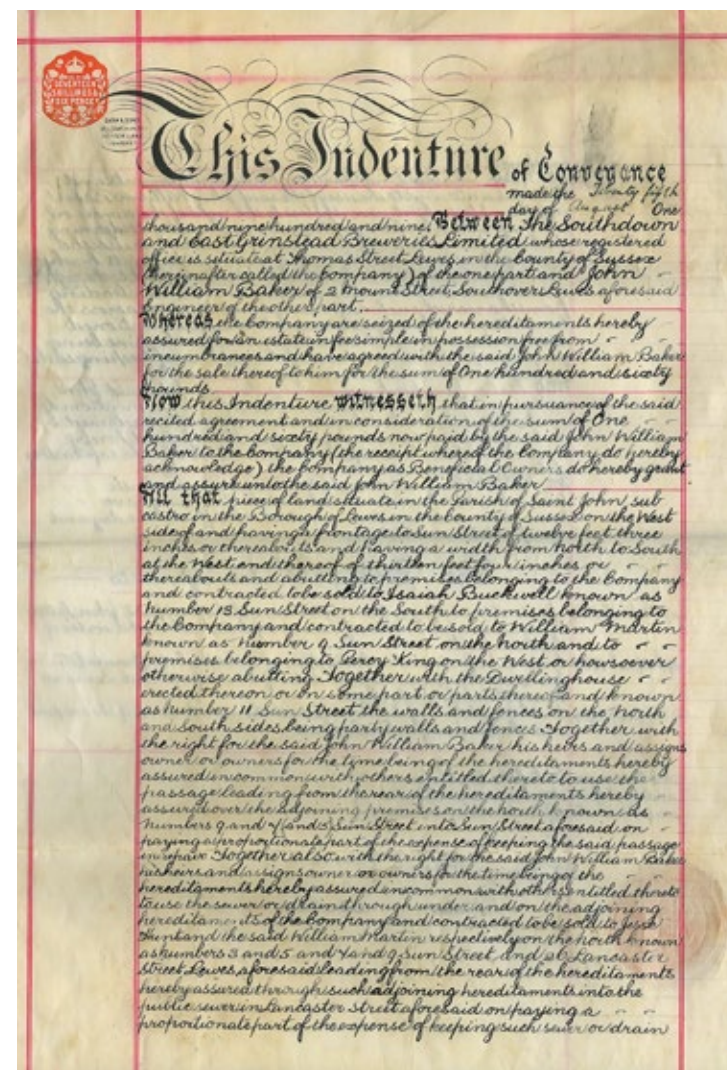 SEVENTEEN
SHILLINGS &
SIX PENCE
This Indenture of Conveyance
made the Twenty fifth
day of August One
thousand nine hundred and nine. Between The Southdown
and East Grinstead Breweries Limited whose registered
office is situate at Thomas Street Lewes in the County of Sussex
(hereinafter called the Company) of the one part and John
William Baker of 2 Mount Street, Southover Lewes aforesaid
Engineer of the other part.
Whereas the Company are seized of the hereditaments hereby
assured for an estate in fee simple in possession free from
incumbrances and have agreed with the said John William Baker
for the sale thereof to him for the sum of One hundred and sixty
pounds
Now this Indenture witnesseth that in pursuance of the said
recited agreement and in consideration of the sum of One
hundred and sixty pounds now paid by the said John William
Baker to the Company (the receipt whereof the Company do hereby
acknowledge) the Company as Beneficial Owners do hereby grant
and assure unto the said John William Baker
All that piece of land situate in the Parish of Saint John sub
castro in the Borough of Lewes in the County of Sussex on the West
side of and having a frontage to Sun Street of twelve feet three
inches or thereabouts and having a width from North to South
at the West end thereof of thirteen feet four inches or
thereabouts and abutting to premises belonging to the Company
and contracted to be sold to Isaiah Buckwell known as
Number 13 Sun Street on the South to premises belonging to
the Company and contracted to be sold to William Martin
known as Number 9 Sun Street on the North and to
premises belonging to Percy King on the West or howsoever
otherwise abutting Together with the Dwellinghouse
erected thereon or on some part or parts thereof and known
as Number 11 Sun Street the walls and fences on the North
and South sides being party walls and fences Together with
the right for the said John William Baker his heirs and assigns
owner or owners for the time being of the hereditaments hereby
assured in common with others entitled thereto to use the
passage leading from the rear of the hereditaments hereby
assured over the adjoining premises on the north known as
Numbers 9 and 7 (and 5) Sun Street into Sun Street aforesaid on
paying a proportionate part of the expense of keeping the said passage
in repair Together also with the right for the said John William Baker
his heirs and assigns owner or owners for the time being of the
hereditaments hereby assured in common with others entitled thereto
to use the sewer or drain through under and on the adjoining
hereditaments of the Company and contracted to be sold to Jesse
Hunt and the said William Martin respectively on the north known
as Numbers 3 and 5 and 7 and 9 Sun Street and 26 Lancaster
Street Lewes aforesaid leading from the rear of the hereditaments
hereby assured through such adjoining hereditaments into the
public sewer in Lancaster Street aforesaid on paying a
proportionate part of the expense of keeping such sewer or drain